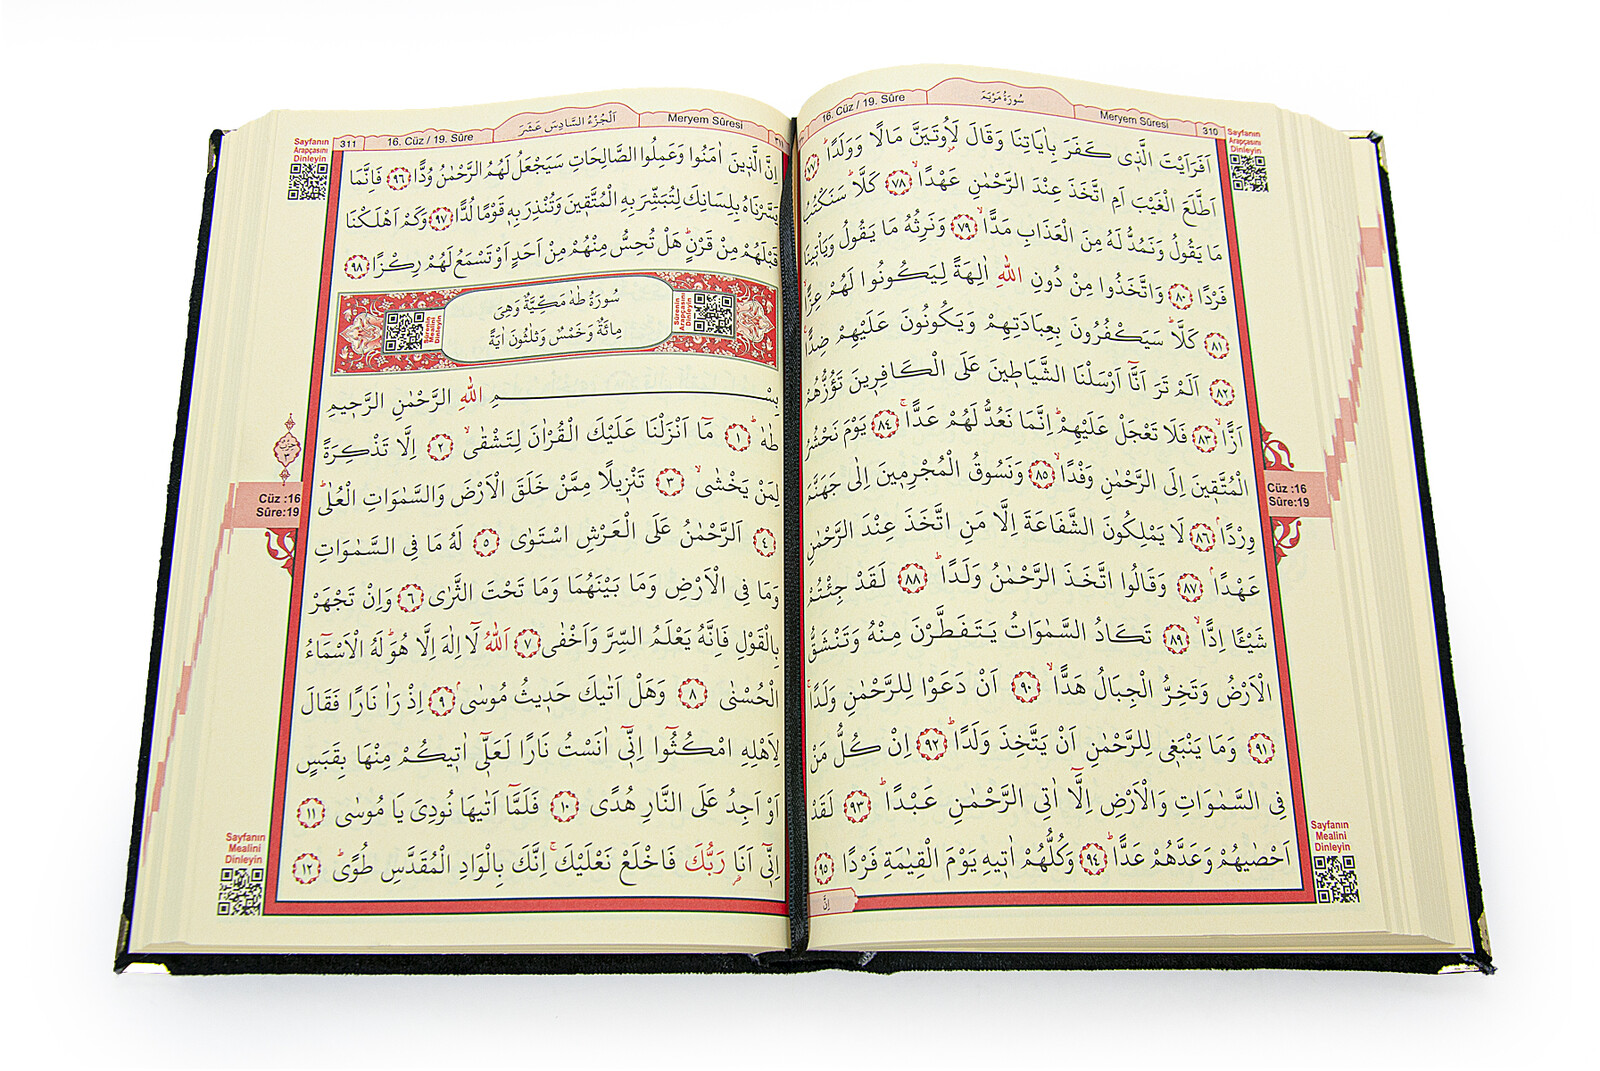 16. Cüz / 19. Sûre
سُورَةُ مَرْيَمَ
Meryem Sûresi
310
Sayfanın
Arapçasını
Dinleyin
اَفَرَاَيْتَ الَّذ۪ي كَفَرَ بِاٰيَاتِنَا وَقَالَ لَاُو۫تَيَنَّ مَالًا وَوَلَدًاۜ ﴿٧٧﴾
اَطَّلَعَ الْغَيْبَ اَمِ اتَّخَذَ عِنْدَ الرَّحْمٰنِ عَهْدًاۙ ﴿٧٨﴾ كَلَّاۜ سَنَكْتُبُ
مَا يَقُولُ وَنَمُدُّ لَهُ مِنَ الْعَذَابِ مَدًّاۙ ﴿٧٩﴾ وَنَرِثُهُ مَا يَقُولُ وَيَأْت۪ينَا
فَرْدًا ﴿٨٠﴾ وَاتَّخَذُوا مِنْ دُونِ اللّٰهِ اٰلِهَةً لِيَكُونُوا لَهُمْ عِزًّاۙ
﴿٨١﴾ كَلَّاۜ سَيَكْفُرُونَ بِعِبَادَتِهِمْ وَيَكُونُونَ عَلَيْهِمْ ضِدًّا۟
﴿٨٢﴾ اَلَمْ تَرَ اَنَّٓا اَرْسَلْنَا الشَّيَاط۪ينَ عَلَى الْكَافِر۪ينَ تَؤُزُّهُمْ
اَزًّاۙ ﴿٨٣﴾ فَلَا تَعْجَلْ عَلَيْهِمْۜ اِنَّمَا نَعُدُّ لَهُمْ عَدًّاۚ ﴿٨٤﴾ يَوْمَ نَحْشُرُ
الْمُتَّق۪ينَ اِلَى الرَّحْمٰنِ وَفْدًاۙ ﴿٨٥﴾ وَنَسُوقُ الْمُجْرِم۪ينَ اِلٰى جَهَنَّمَ
وِرْدًاۢ ﴿٨٦﴾ لَا يَمْلِكُونَ الشَّفَاعَةَ اِلَّا مَنِ اتَّخَذَ عِنْدَ الرَّحْمٰنِ
عَهْدًاۢ ﴿٨٧﴾ وَقَالُوا اتَّخَذَ الرَّحْمٰنُ وَلَدًاۜ ﴿٨٨﴾ لَقَدْ جِئْتُمْ
شَيْـًٔا اِدًّاۙ ﴿٨٩﴾ تَكَادُ السَّمٰوَاتُ يَتَفَطَّرْنَ مِنْهُ وَتَنْشَقُّ
الْاَرْضُ وَتَخِرُّ الْجِبَالُ هَدًّاۙ ﴿٩٠﴾ اَنْ دَعَوْا لِلرَّحْمٰنِ وَلَدًاۚ
﴿٩١﴾ وَمَا يَنْبَغ۪ي لِلرَّحْمٰنِ اَنْ يَتَّخِذَ وَلَدًاۜ ﴿٩٢﴾ اِنْ كُلُّ مَنْ
فِي السَّمٰوَاتِ وَالْاَرْضِ اِلَّٓا اٰتِي الرَّحْمٰنِ عَبْدًاۜ ﴿٩٣﴾ لَقَدْ
اَحْصٰيهُمْ وَعَدَّهُمْ عَدًّاۜ ﴿٩٤﴾ وَكُلُّهُمْ اٰت۪يهِ يَوْمَ الْقِيٰمَةِ فَرْدًا ﴿٩٥﴾
اِنَّ
Cüz :16
Sûre:19
Sayfanın
Mealini
Dinleyin
Sayfanın
Arapçasını
Dinleyin
311
16. Cüz / 19. Sûre
اَلْجُزْءُ السَّادِسَ عَشَرَ
Meryem Sûresi
اِنَّ الَّذ۪ينَ اٰمَنُوا وَعَمِلُوا الصَّالِحَاتِ سَيَجْعَلُ لَهُمُ الرَّحْمٰنُ وُدًّا ﴿٩٦﴾ فَاِنَّمَا
يَسَّرْنَاهُ بِلِسَانِكَ لِتُبَشِّرَ بِهِ الْمُتَّق۪ينَ وَتُنْذِرَ بِه۪ قَوْمًا لُدًّا ﴿٩٧﴾ وَكَمْ اَهْلَكْنَا
قَبْلَهُمْ مِنْ قَرْنٍۜ هَلْ تُحِسُّ مِنْهُمْ مِنْ اَحَدٍ اَوْ تَسْمَعُ لَهُمْ رِكْزًا ﴿٩٨﴾
سُورَةُ طٰهٰ مَكِّيَّةٌ وَهِيَ
مِائَةٌ وَخَمْسٌ وَثَلٰثُونَ اٰيَةً
Sûrenin
Arapçasını
Dinleyin
Sûrenin
Mealini
Dinleyin
بِسْمِ اللّٰهِ الرَّحْمٰنِ الرَّح۪يمِ
طٰهٰۜ ﴿١﴾ مَٓا اَنْزَلْنَا عَلَيْكَ الْقُرْاٰنَ لِتَشْقٰىۙ ﴿٢﴾ اِلَّا تَذْكِرَةً
لِمَنْ يَخْشٰىۙ ﴿٣﴾ تَنْز۪يلًا مِمَّنْ خَلَقَ الْاَرْضَ وَالسَّمٰوَاتِ الْعُلٰىۜ
﴿٤﴾ اَلرَّحْمٰنُ عَلَى الْعَرْشِ اسْتَوٰى ﴿٥﴾ لَهُ مَا فِي السَّمٰوَاتِ
وَمَا فِي الْاَرْضِ وَمَا بَيْنَهُمَا وَمَا تَحْتَ الثَّرٰى ﴿٦﴾ وَاِنْ تَجْهَرْ
بِالْقَوْلِ فَاِنَّهُ يَعْلَمُ السِّرَّ وَاَخْفٰى ﴿٧﴾ اَللّٰهُ لَٓا اِلٰهَ اِلَّا هُوَۜ لَهُ الْاَسْمَٓاءُ
الْحُسْنٰى ﴿٨﴾ وَهَلْ اَتٰيكَ حَد۪يثُ مُوسٰىۢ ﴿٩﴾ اِذْ رَاٰ نَارًا فَقَالَ
لِاَهْلِهِ امْكُثُٓوا اِنّ۪ٓي اٰنَسْتُ نَارًا لَعَلّ۪ٓي اٰت۪يكُمْ مِنْهَا بِقَبَسٍ
اَوْ اَجِدُ عَلَى النَّارِ هُدًى ﴿١٠﴾ فَلَمَّٓا اَتٰيهَا نُودِيَ يَا مُوسٰى ﴿١١﴾
اِنّ۪ٓي اَنَا۬ رَبُّكَ فَاخْلَعْ نَعْلَيْكَۚ اِنَّكَ بِالْوَادِ الْمُقَدَّسِ طُوًىۜ ﴿١٢﴾
Cüz :16
Sûre:19
Sayfanın
Mealini
Dinleyin